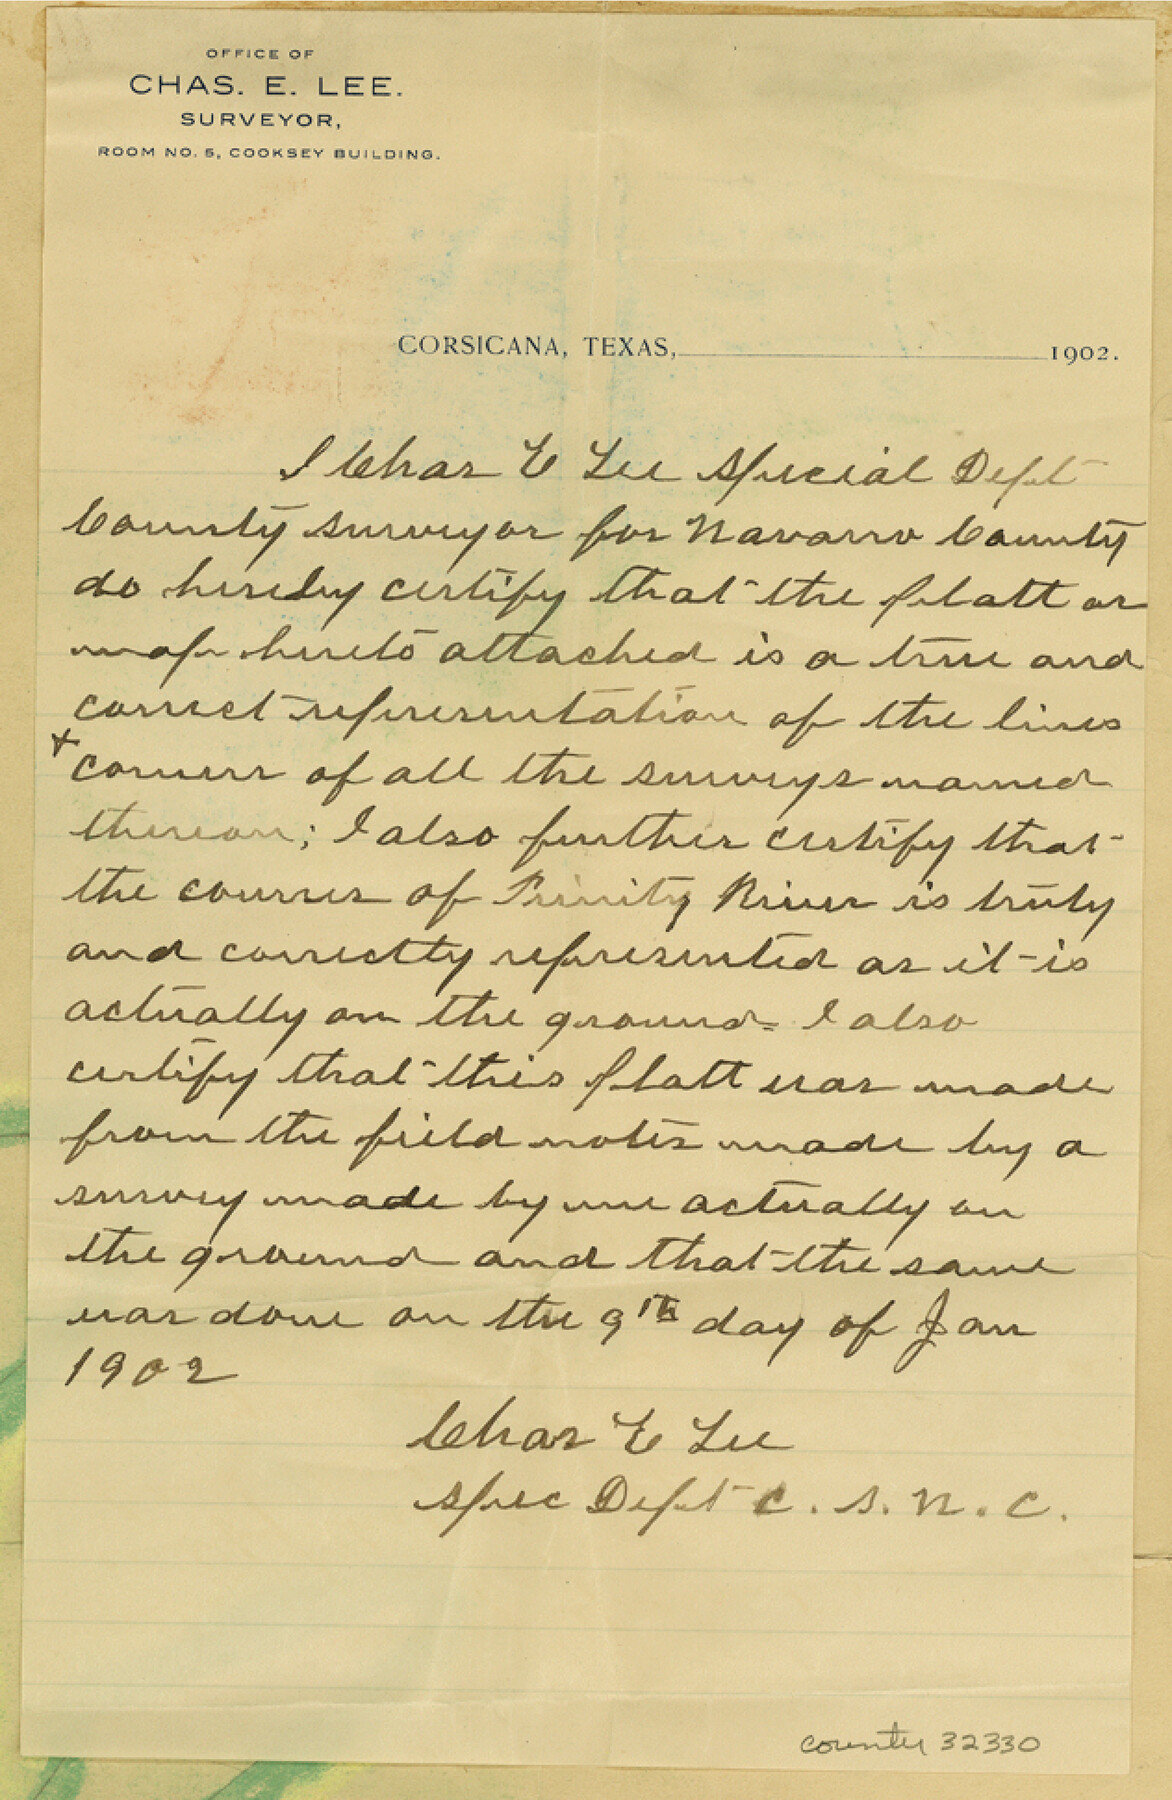 OFFICE OF
CHAS. E. LEE.
SURVEYOR,
ROOM NO. 5, COOKSEY BUILDING.
CORSICANA, TEXAS, 1902.
I Chas E Lee Special Dept
County surveyor for Navarro County
do hereby certify that the platt or
map hereto attached is a true and
correct representation of the lines
+ corners of all the surveys named
thereon; I also further certify that
the courses of Trinity River is truly
and correctly represented as it is
actually on the ground. I also
certify that this platt was made
from the field notes made by a
survey made by me actually on
the ground and that the same
was done on the 9th day of Jan
1902
Chas E Lee
Spec Dept C. S. N. C.
counter 32330